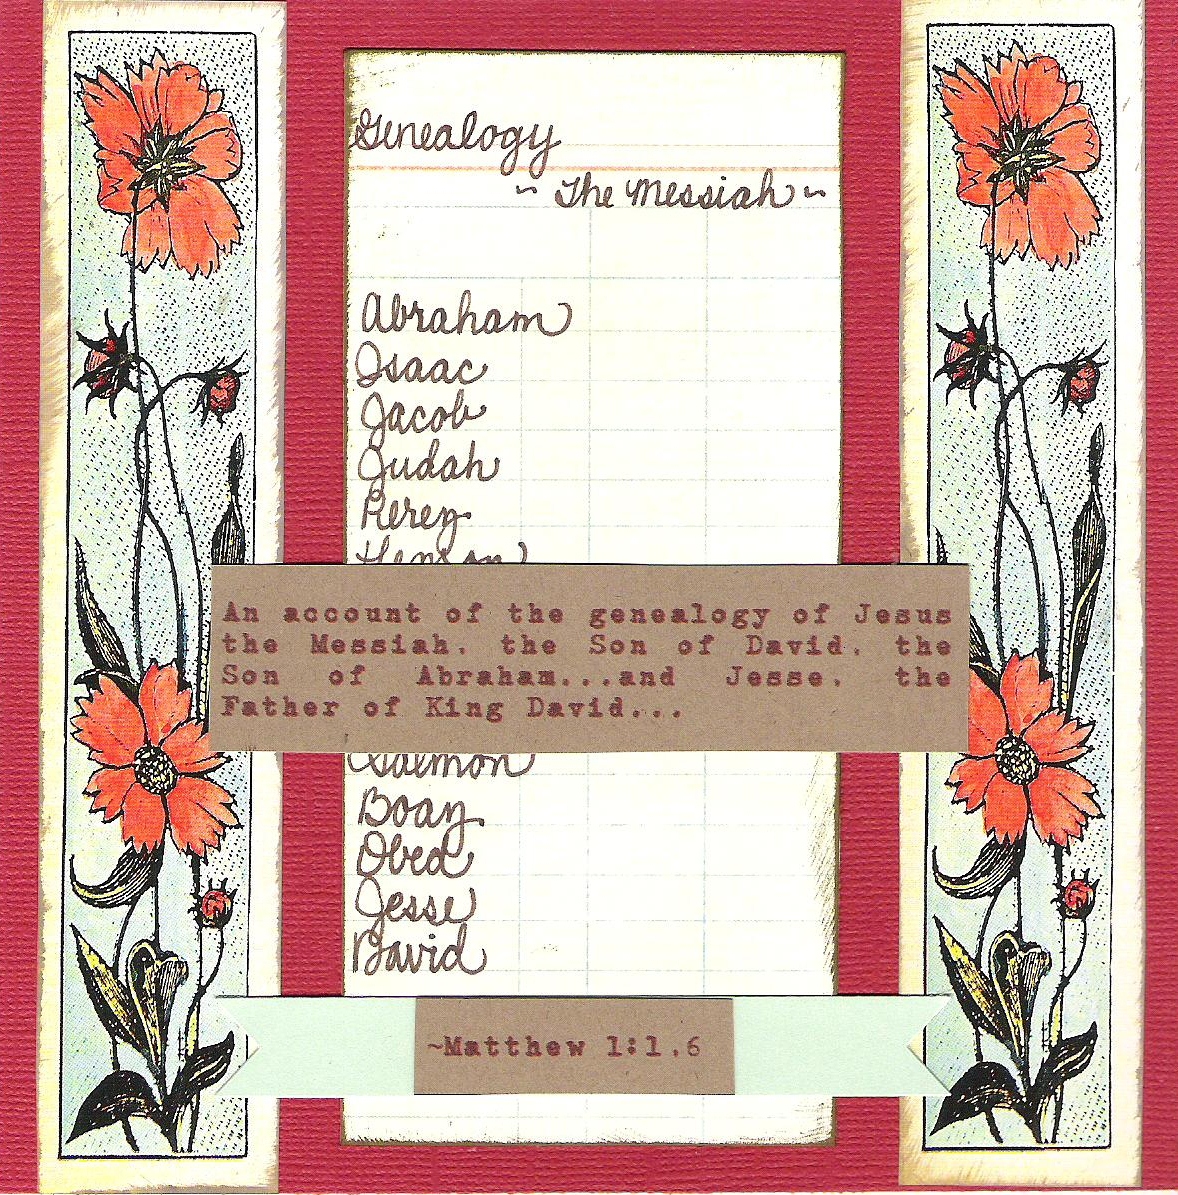 Genealogy
~ The Messiah ~
Abraham
Isaac
Jacob
Judah
Perez
An account of the genealogy of Jesus
the Messiah, the Son of David, the
Son of Abraham...and Jesse, the
Father of King David...
Salmon
Boaz
Obed
Jesse
David
~Matthew 1:1,6